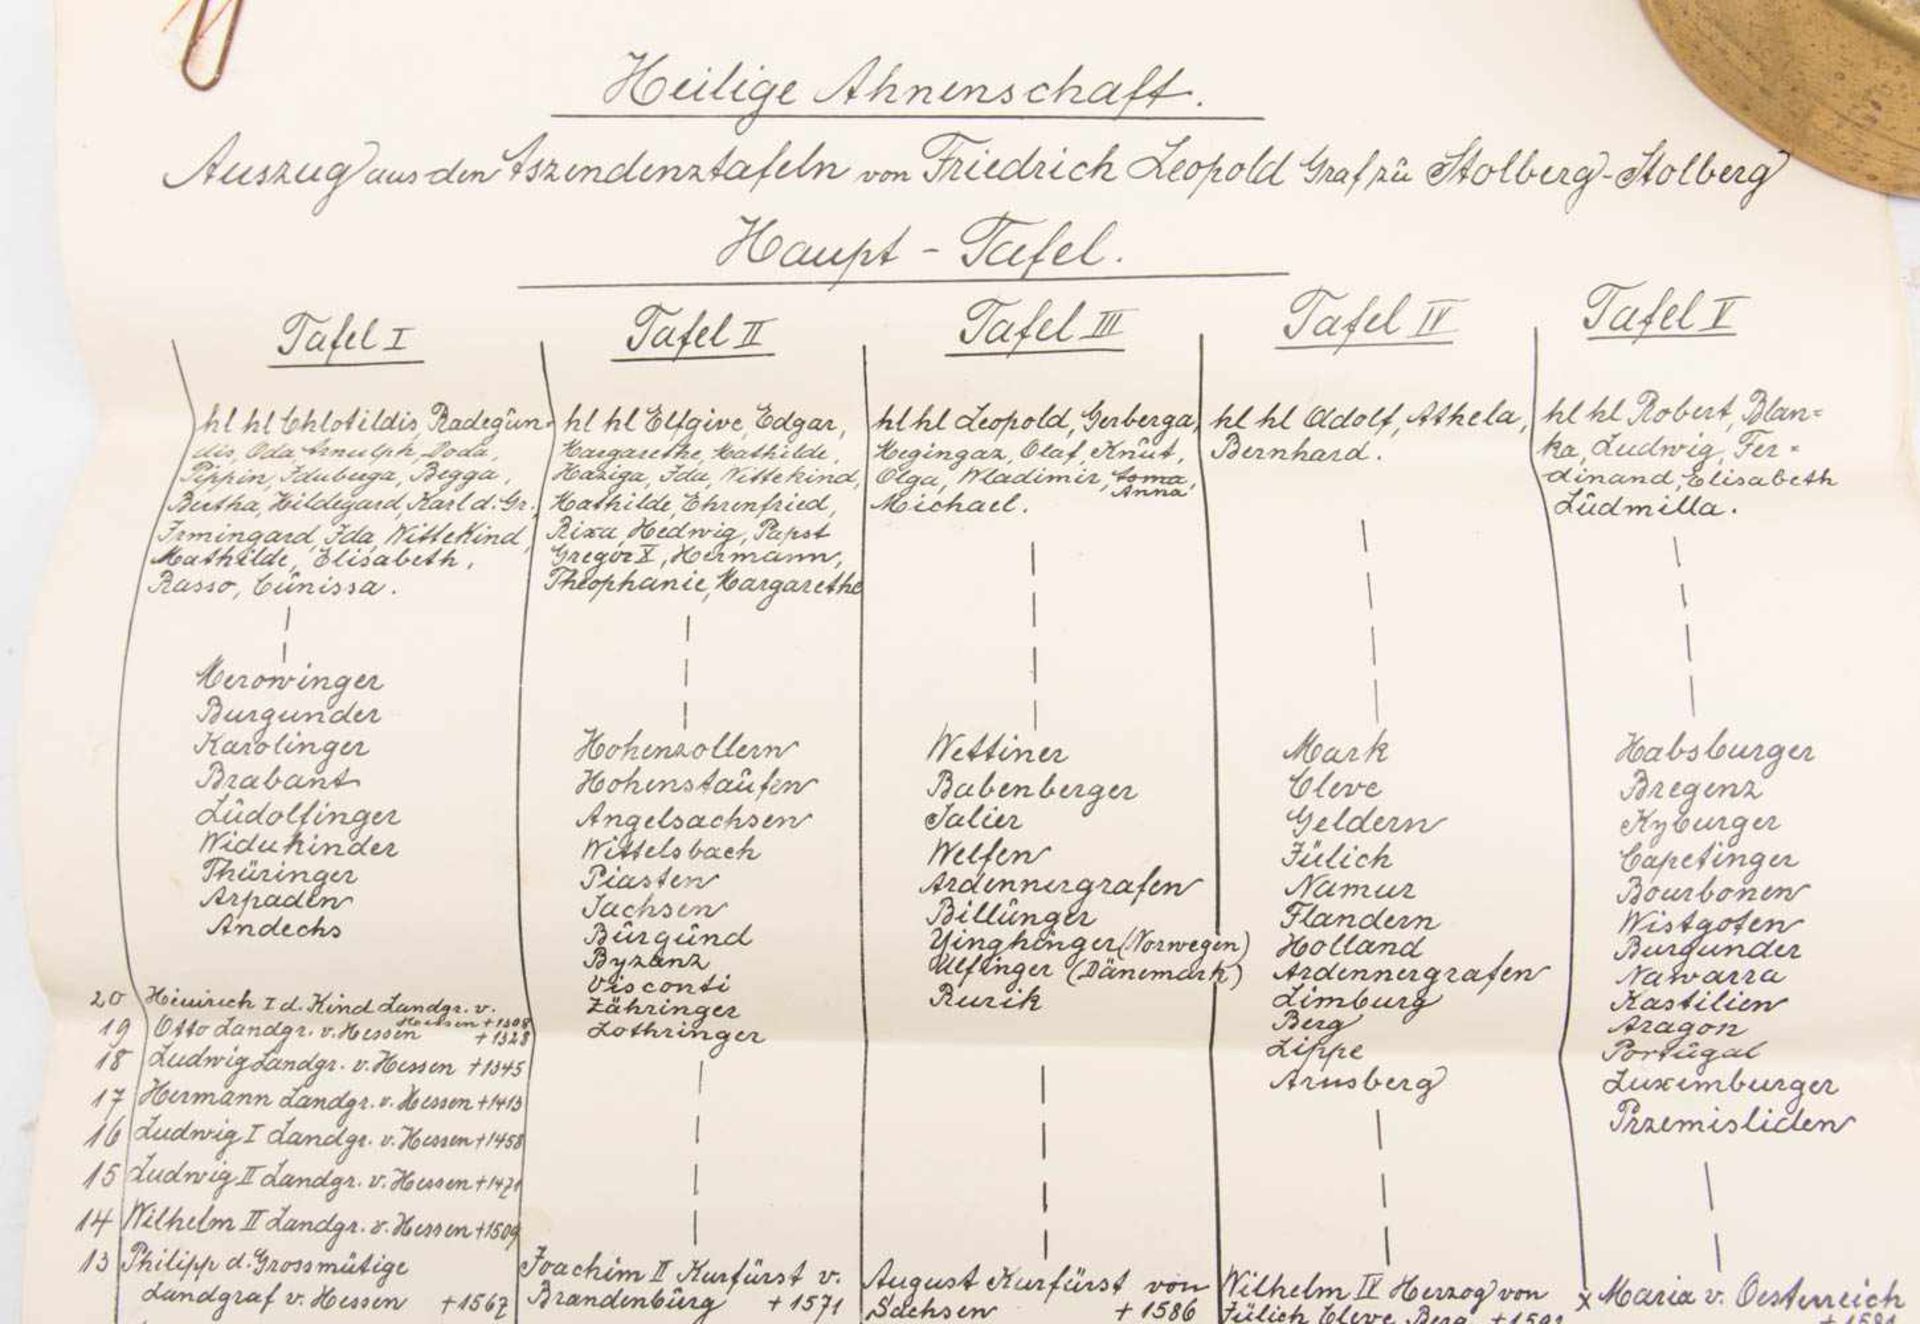 Heilige Ahnenschaft.
Auszug aus den Aszendenztafeln von Friedrich Leopold Graf zu Stolberg-Stolberg
Haupt-Tafel.
Tafel I
hl hl Chlotildis Radegun-
dis, Oda Arnulph, Doda,
Pippin, Iduberga, Begga,
Bertha, Hildegard, Karl d. Gr.,
Irmingard, Ida Wittekind,
Mathilde, Elisabeth,
Rasso, Cunissa.
Merowinger
Burgunder
Karolinger
Brabant
Ludolfinger
Widukinder
Thüringer
Arpaden
Andechs
20 Heinrich I d. Kind Landgr. v.
Hessen +1308
19 Otto Landgr. v. Hessen +1328
18 Ludwig Landgr. v. Hessen +1345
17 Hermann Landgr. v. Hessen +1413
16 Ludwig I Landgr. v. Hessen +1458
15 Ludwig II Landgr. v. Hessen +1471
14 Wilhelm II Landgr. v. Hessen +1509
13 Philipp d. Grossmütige
Landgraf v. Hessen +1567
Tafel II
hl hl Elfgive, Edgar,
Margarethe, Mathilde,
Haziga, Ida, Wittekind,
Mathilde, Ehrenfried,
Rixa, Hedwig, Papst
Gregor X, Hermann,
Theophanie, Margarethe
Hohenzollern
Hohenstaufen
Angelsachsen
Wittelsbach
Piasten
Sachsen
Burgund
Byzanz
Visconti
Zähringer
Lothringer
Joachim II Kurfürst v.
Brandenburg +1571
Tafel III
hl hl Leopold, Gerberga,
Megingaz, Olaf, Knut,
Olga, Wladimir,
Anna,
Michael.
Wettiner
Babenberger
Salier
Welfen
Ardennergrafen
Billunger
Yinghinger (Norwegen)
Ulfinger (Dänemark)
Rurik
August Kurfürst von
Sachsen +1586
Tafel IV
hl hl Adolf, Athela,
Bernhard.
Mark
Cleve
Geldern
Jülich
Namur
Flandern
Holland
Ardennergrafen
Limburg
Berg
Lippe
Arnsberg
Wilhelm IV Herzog von
Jülich Cleve Berg
Tafel V
hl hl Robert, Blan-
ka, Ludwig, Fer-
dinand, Elisabeth
Ludmilla.
Habsburger
Bregenz
Kyburger
Capetinger
Bourbonen
Wistgoten
Burgunder
Nawarra
Kastilien
Aragon
Portugal
Luxemburger
Przemisliden
x Maria v. Oesterreich